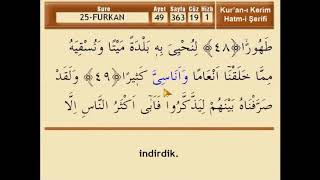 Sure Ayet Sayfa Cüz Hizb
25-FURKAN 49 363 19 1
Kur'an-ı Kerim
Hatm-i Şerifi
طَهُورًا ﴿٤٨﴾ لِنُحْيِىَ بِهٖ بَلْدَةً مَيْتًا وَنُسْقِيَهُ
مِمَّا خَلَقْنَٓا اَنْعَامًا وَاَنَاسِىَّ كَثٖيرًا ﴿٤٩﴾ وَلَقَدْ
صَرَّفْنَاهُ بَيْنَهُمْ لِيَذَّكَّرُوا فَاَبٰٓى اَكْثَرُ النَّاسِ اِلَّا
indirdik.